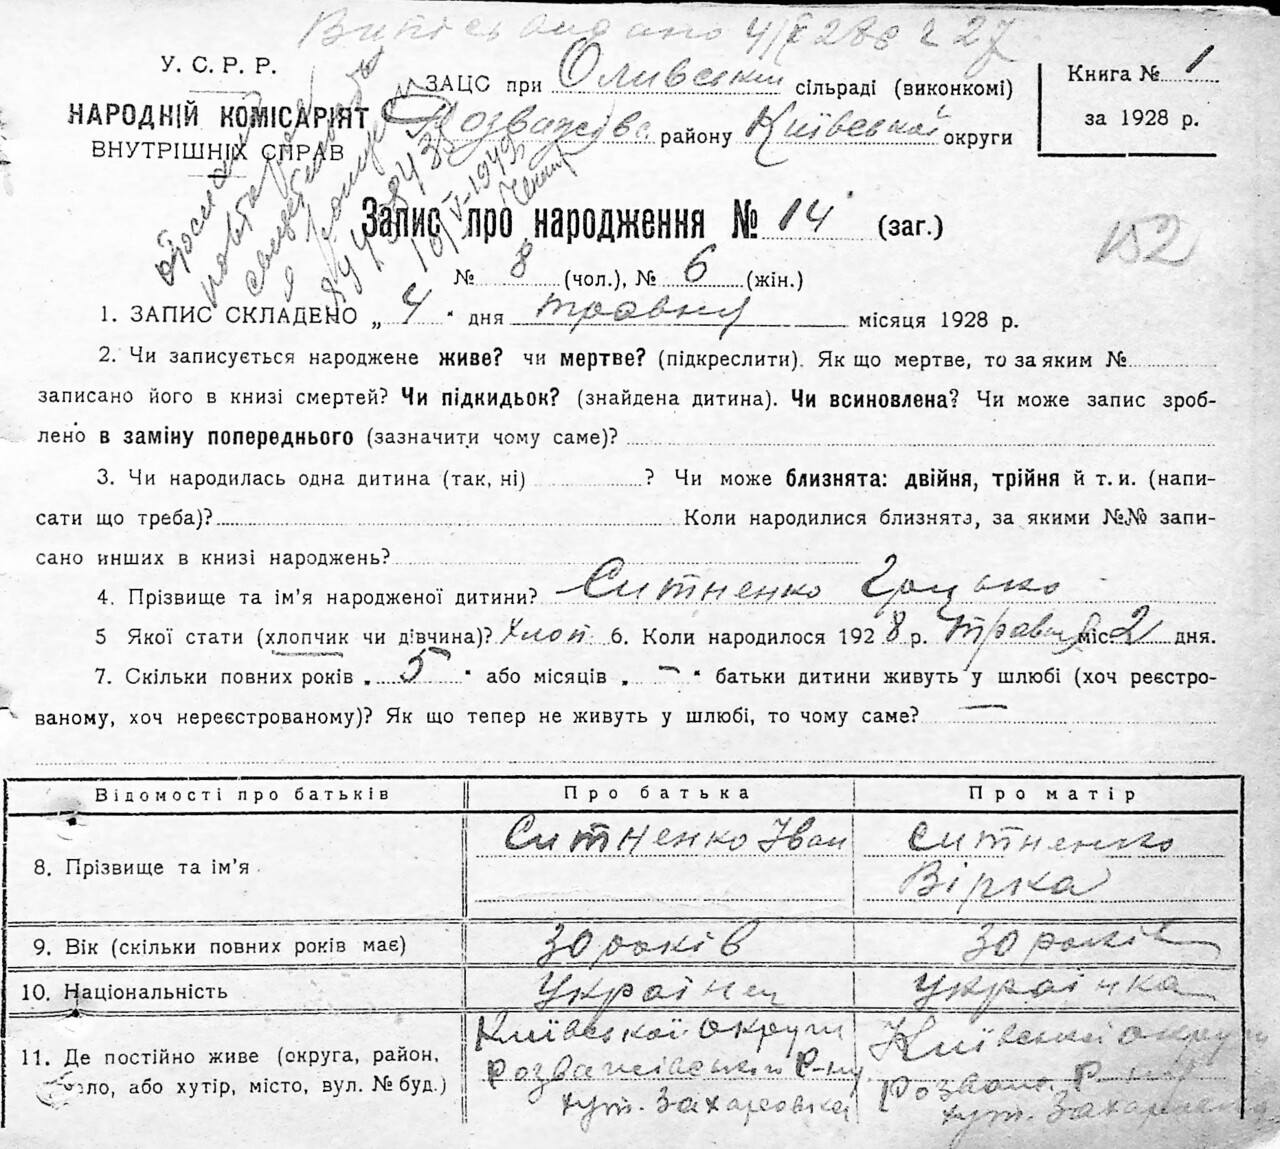 У. С. Р. Р.
НАРОДНІЙ КОМІСАРІЯТ
ВНУТРІШНІХ СПРАВ
ЗАЦС при Оливській сільраді (виконкомі)
Розважівськ. району Київської округи
Книга № 1
за 1928 р.
Запис про народження № 14 (заг.)
152
№ 8 (чол.), № 6 (жін.)
1. ЗАПИС СКЛАДЕНО „ 4 “ дня травня місяця 1928 р.
2. Чи записується народжене живе? чи мертве? (підкреслити). Як що мертве, то за яким №
записано його в книзі смертей? Чи підкидьок? (знайдена дитина). Чи всиновлена? Чи може запис зроб-
лено в заміну попереднього (зазначити чому саме)?
3. Чи народилась одна дитина (так, ні) ? Чи може близнята: двійня, трійня й т. и. (напи-
сати що треба)? Коли народилися близнята, за якими №№ запи-
сано инших в книзі народжень?
4. Прізвище та ім’я народженої дитини? Ситненко Грицько
5 Якої стати (хлопчик чи дівчина)? Хлоп. 6. Коли народилося 1928 р. Травня міс 2 дня.
7. Скільки повних років „ 5 “ або місяців „ – “ батьки дитини живуть у шлюбі (хоч реєстро-
ваному, хоч нереєстрованому)? Як що тепер не живуть у шлюбі, то чому саме? —
Відомості про батьків Про батька Про матір
8. Прізвище та ім’я Ситненко Іван Ситненко
Вірка
9. Вік (скільки повних років має) 30 років 30 років
10. Національність Українец Українка
11. Де постійно живе (округа, район,
село, або хутір, місто, вул. № буд.)
Київської округи
Розважівський Р-ну
хут. Захаровка
Київської округи
Розваж. Р-ну
хут. Захаровка